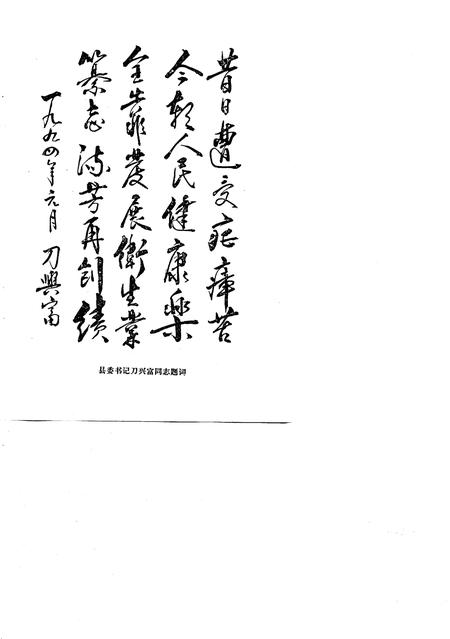 昔日遭受疟瘴苦
今朝人民健康樂
全靠發展衛生業
纂志流芳再創績
一九九四年元月 刀興富
县委书记刀兴富同志题词